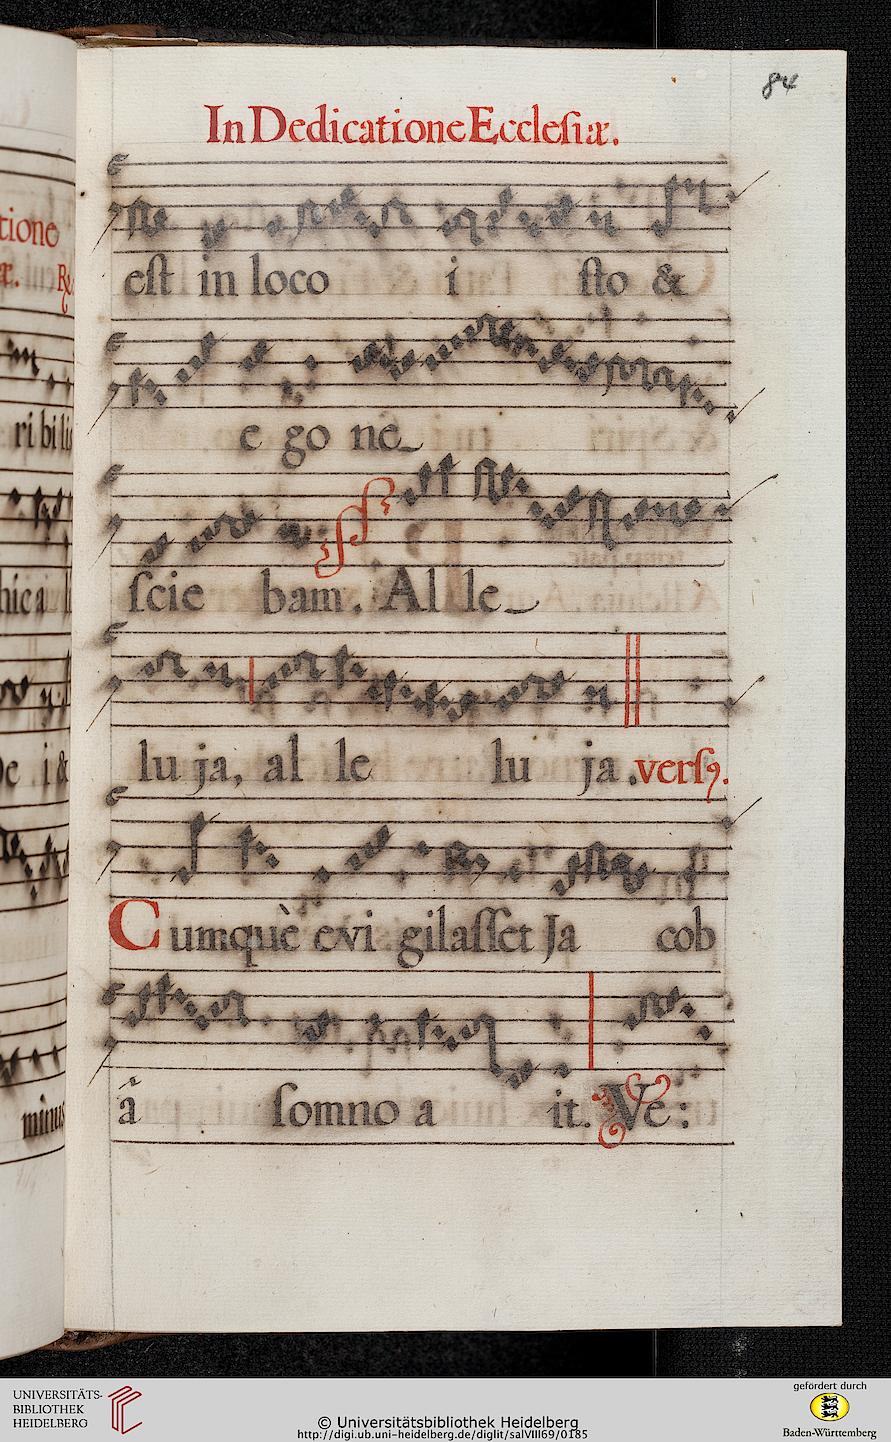 84
In Dedicatione Ecclesiæ.
tione
æ. R
est in loco i sto &
ri bi lis
e go ne
hic a
scie bam. Al le
De i &
lu ja, al le lu ja. versꝰ.
Cumquè evi gilasset Ja cob
minus
ã somno a it. Ve:
UNIVERSITÄTS-
BIBLIOTHEK
HEIDELBERG
© Universitätsbibliothek Heidelberg
http://digi.ub.uni-heidelberg.de/diglit/salVIII69/0185
gefördert durch
Baden-Württemberg